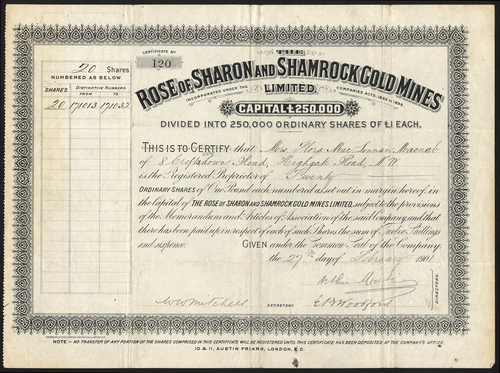 20 Shares
NUMBERED AS BELOW.
SHARES. DISTINCTIVE NUMBERS
FROM TO
20 171013 171032
CERTIFICATE No
120
THE
ROSE OF SHARON AND SHAMROCK GOLD MINES
INCORPORATED UNDER THE LIMITED. COMPANIES ACTS, 1862 TO
CAPITAL £250,000
DIVIDED INTO 250,000 ORDINARY SHARES OF £1 EACH.
THIS IS TO CERTIFY that Mrs. Flora Mac Macnab
of 8 Croftdown Road, Highgate Road, N.W.
is the Registered Proprietor of Twenty
ORDINARY SHARES of One Pound each numbered as set out in margin hereof, in
the Capital of THE ROSE OF SHARON AND SHAMROCK GOLD MINES LIMITED, subject to the provisions
of the Memorandum and Articles of Association of the said Company, and that
there has been paid up in respect of each of such Shares the sum of Twelve Shillings
and sixpence. GIVEN under the Common Seal of the Company,
the 27th day of February 1901
Arthur
DIRECTORS.
W W Mitchell SECRETARY. E B Woodford
NOTE:- NO TRANSFER OF ANY PORTION OF THE SHARES COMPRISED IN THIS CERTIFICATE WILL BE REGISTERED UNTIL THIS CERTIFICATE HAS BEEN DEPOSITED AT THE COMPANY'S OFFICE.
10 & 11, AUSTIN FRIARS, LONDON, E.C.